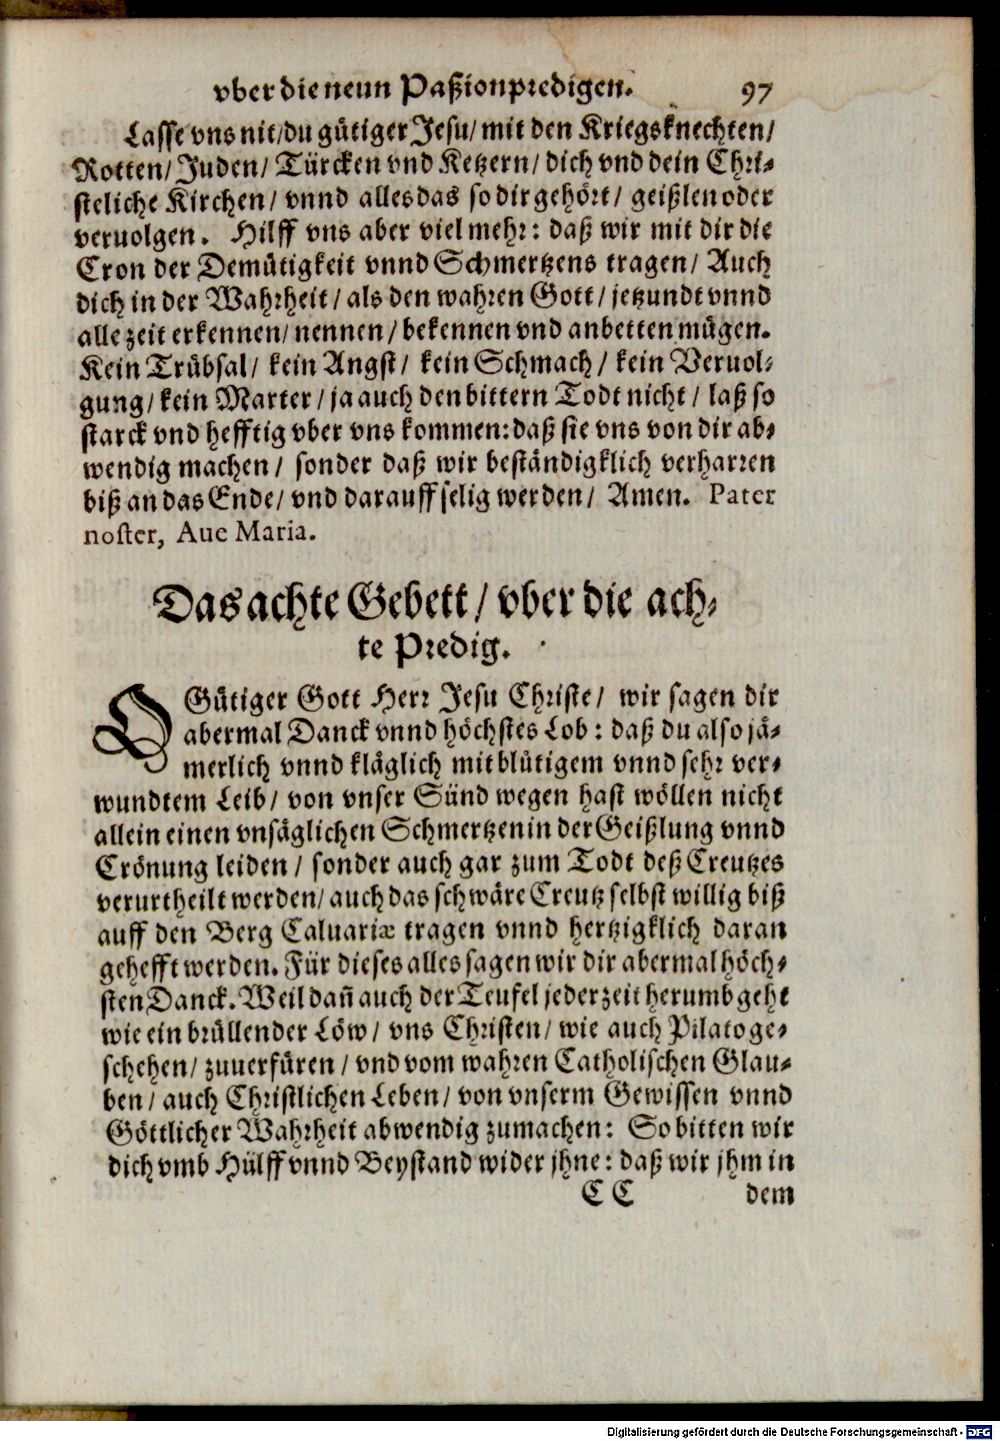 vber die neun Paßionpredigen. 97
Lasse vns nit/ du gütiger Jesu/ mit den Kriegsknechten/
Rotten/ Juden/ Türcken vnd Ketzern/ dich vnd dein Chri-
steliche Kirchen/ vnnd alles das so dir gehört/ geißlen oder
veruolgen. Hilff vns aber viel mehr: daß wir mit dir die
Cron der Demütigkeit vnnd Schmertzens tragen/ Auch
dich in der Wahrheit/ als den wahren Gott/ jetzundt vnnd
alle zeit erkennen/ nennen/ bekennen vnd anbetten mügen.
Kein Trübsal/ kein Angst/ kein Schmach/ kein Veruol-
gung/ kein Marter/ ja auch den bittern Todt nicht/ laß so
starck vnd hefftig vber vns kommen: daß sie vns von dir ab-
wendig machen/ sonder daß wir beständigklich verharren
biß an das Ende/ vnd darauff selig werden/ Amen. Pater
noster, Aue Maria.
Das achte Gebett/ vber die ach-
te Predig.
O Gütiger Gott Herr Jesu Christe/ wir sagen dir
abermal Danck vnnd höchstes Lob: daß du also jä-
merlich vnnd kläglich mit blütigem vnnd sehr ver-
wundtem Leib/ von vnser Sünd wegen hast wöllen nicht
allein einen vnsäglichen Schmertzen in der Geißlung vnnd
Crönung leiden/ sonder auch gar zum Todt deß Creutzes
verurtheilt werden/ auch das schwäre Creutz selbst willig biß
auff den Berg Caluariæ tragen vnnd hertzigklich daran
gehefft werden. Für dieses alles sagen wir dir abermal höch-
sten Danck. Weil dañ auch der Teufel jederzeit herumb geht
wie ein brüllender Löw/ vns Christen/ wie auch Pilato ge-
schehen/ zuuerfüren/ vnd vom wahren Catholischen Glau-
ben/ auch Christlichen Leben/ von vnserm Gewissen vnnd
Göttlicher Wahrheit abwendig zumachen: So bitten wir
dich vmb Hülff vnnd Beystand wider jhne: daß wir jhm in
C C dem
Digitalisierung gefördert durch die Deutsche Forschungsgemeinschaft - DFG